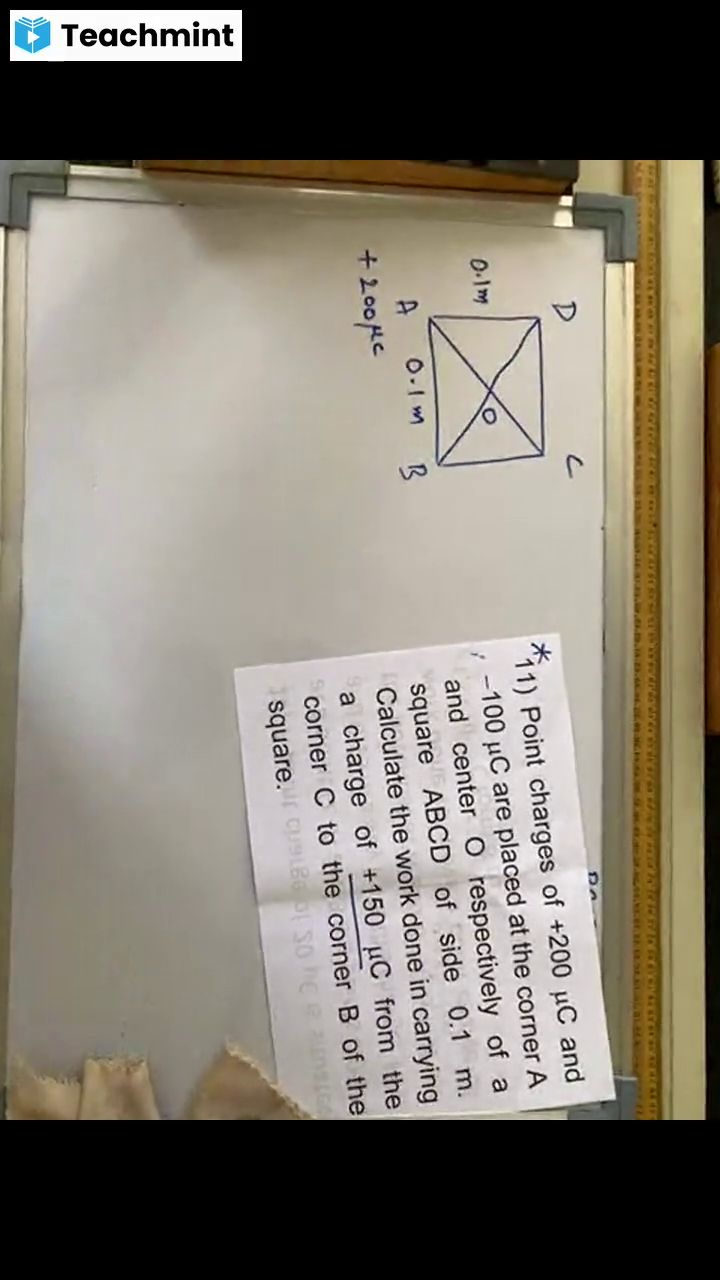 Teachmint
D
C
0.1m
O
A
0.1m
B
+200μc
*11) Point charges of +200 μC and
-100 μC are placed at the corner A
and center O respectively of a
square ABCD of side 0.1 m.
Calculate the work done in carrying
a charge of +150 μC from the
corner C to the corner B of the
square.